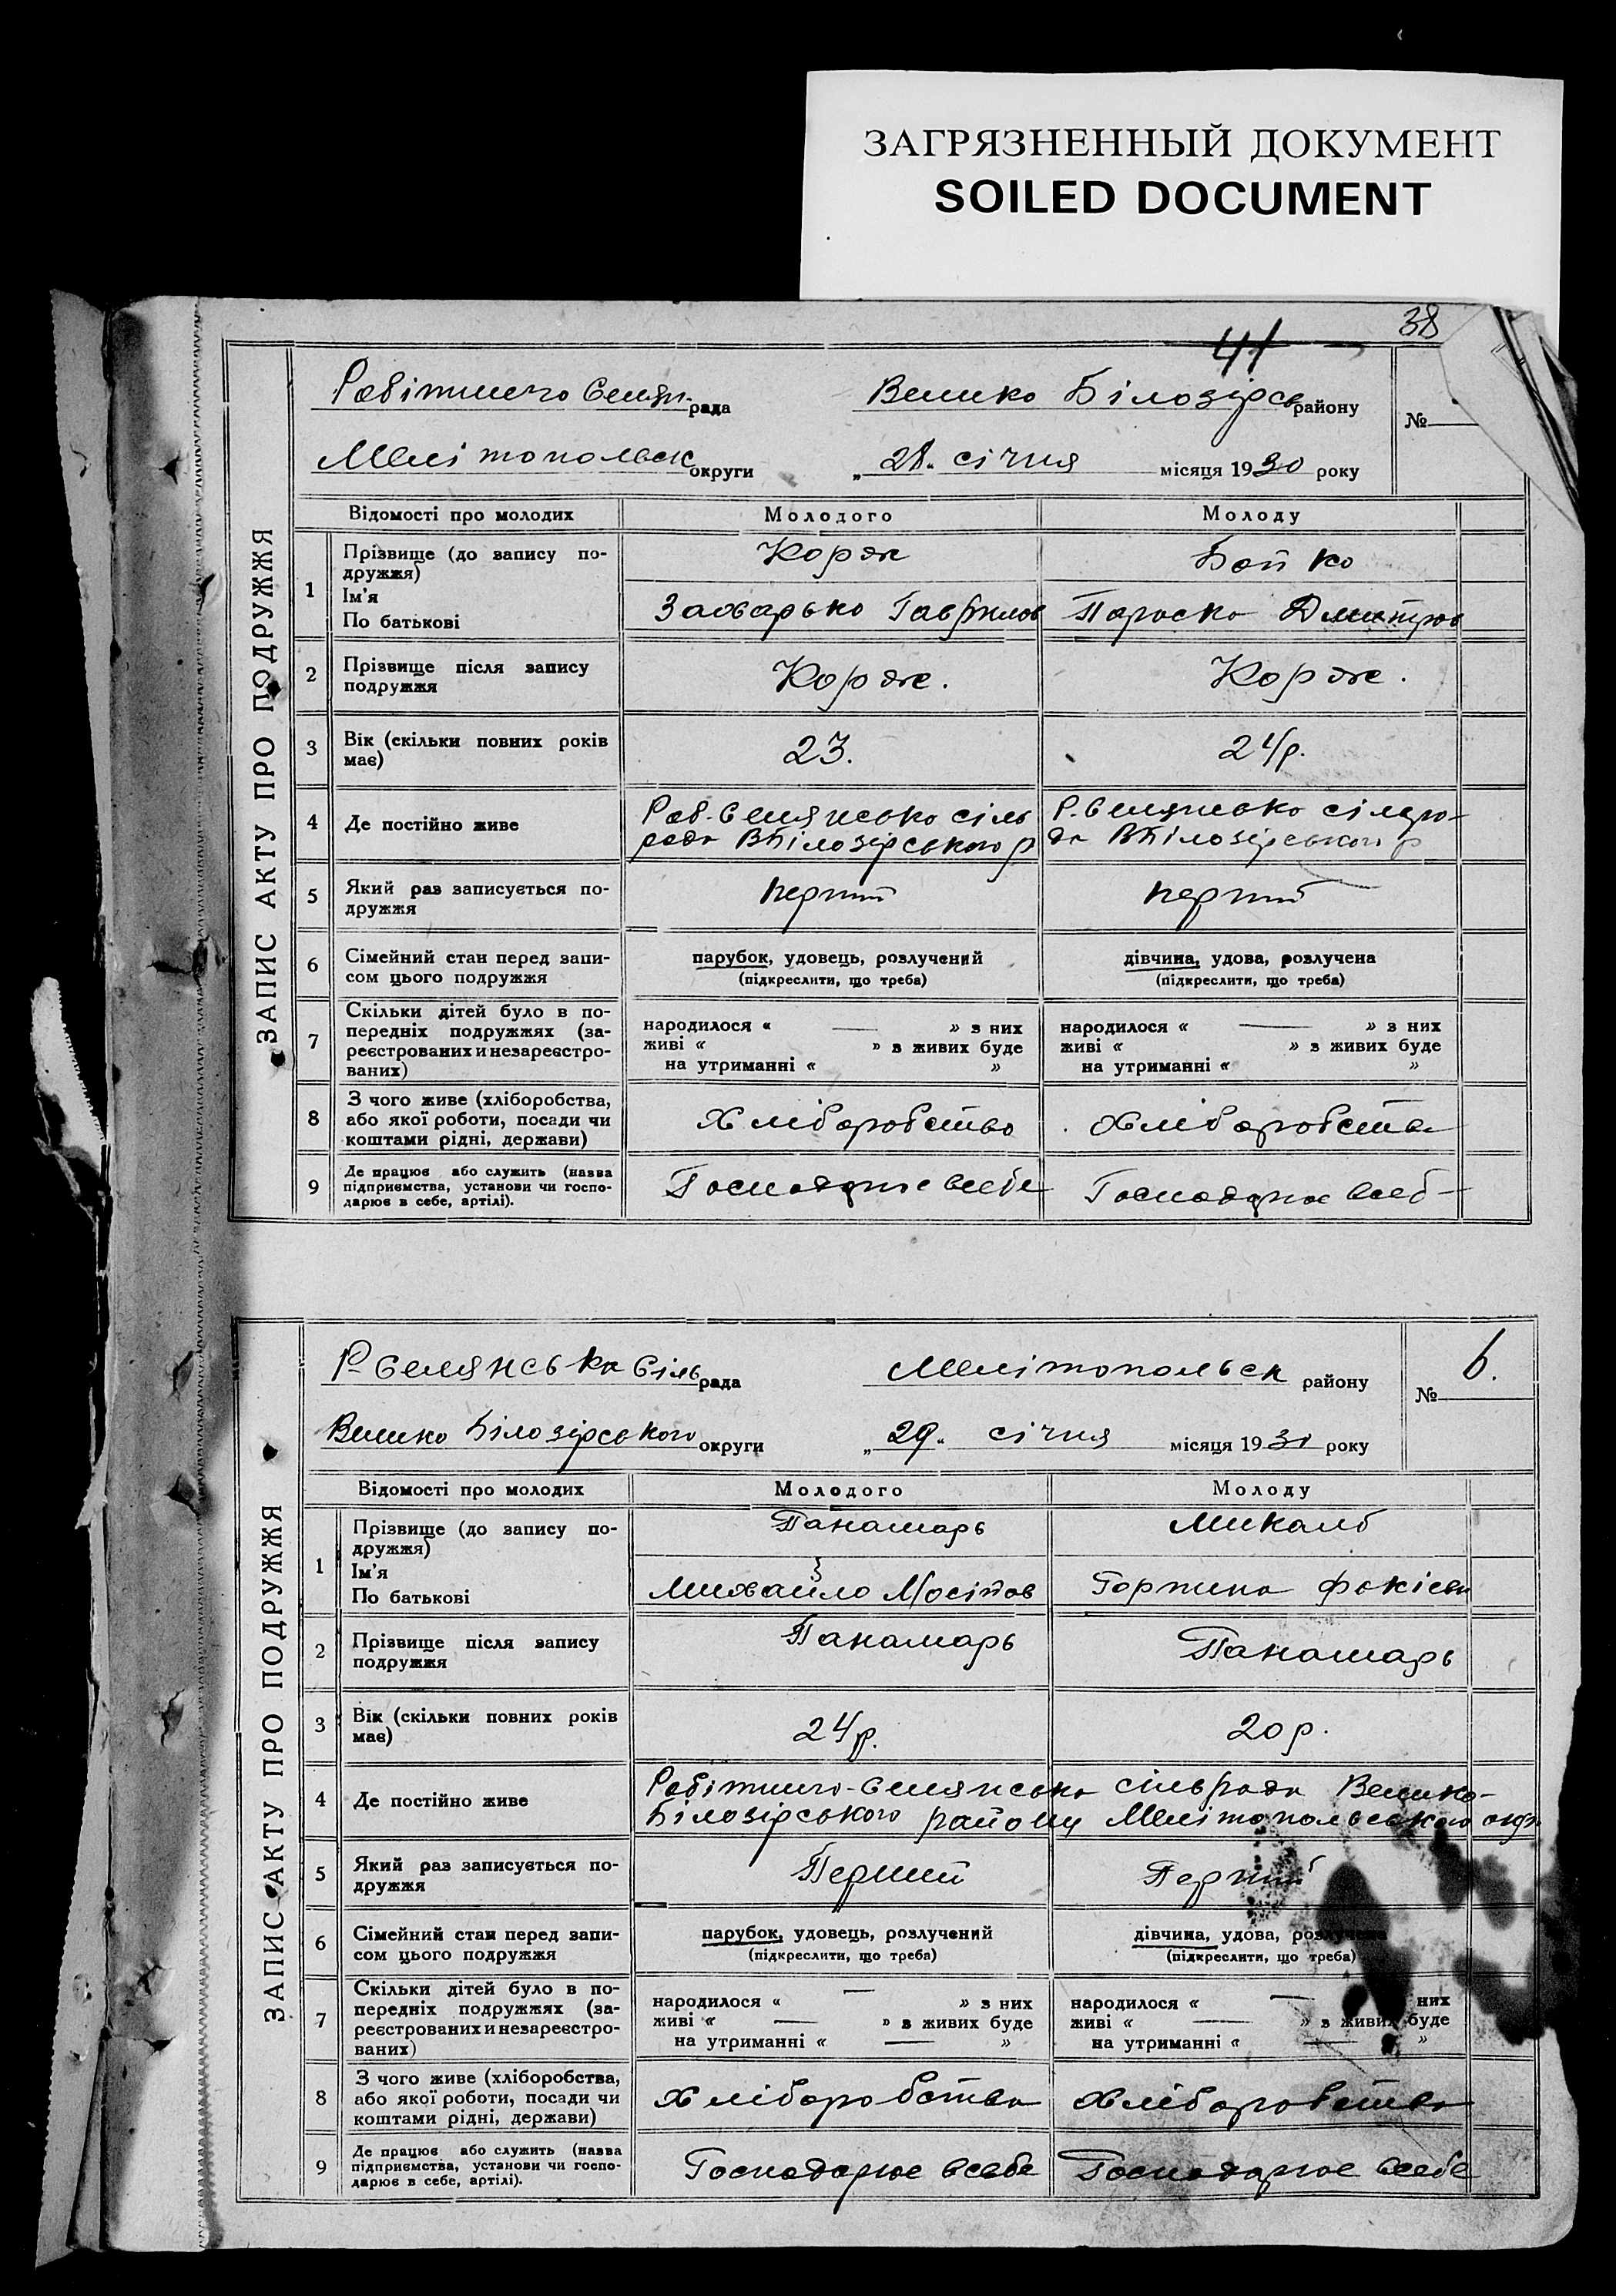 ЗАГРЯЗНЕННЫЙ ДОКУМЕНТ
SOILED DOCUMENT
38
41
ЗАПИС АКТУ ПРО ПОДРУЖЖЯ
Робітничо Селян. рада Велико Білозірсь району
№
Мелітопольск округи „28" січня місяця 1930 року
Відомості про молодих Молодого Молоду
1 Прізвище (до запису по-
дружжя) Корж Бойко
Ім'я
По батькові Захарько Гаврилов Параска Дмитров
2 Прізвище після запису
подружжя Корж. Корж.
3 Вік (скільки повних років
має) 23. 24р.
4 Де постійно живе Роб-Селянсько сіль Р.Селянсько сільра-
рада ВБілозірського р да ВБілозірського р
5 Який раз записується по-
дружжя перший перший
6 Сімейний стан перед запи-
сом цього подружжя парубок, удовець, розлучений дівчина, удова, розлучена
(підкреслити, що треба) (підкреслити, що треба)
7 Скільки дітей було в по-
передніх подружжях (за-
реєстрованих и незареєстро-
ваних)
народилося « — » з них народилося « — » з них
живі « » з живих буде живі « » з живих буде
на утриманні « » на утриманні « »
8 З чого живе (хліборобства,
або якої роботи, посади чи
коштами рідні, держави) Хліборобство Хліборобства
9 Де працює або служить (назва
підприємства, установи чи госпо-
дарює в себе, артілі). Господарює всебе Господарює всеб-
ЗАПИС АКТУ ПРО ПОДРУЖЖЯ
Р-Селянська Сіль рада Мелітопольск району
№ 6.
Велико Білозірського округи „29" січня місяця 1930 року
Відомості про молодих Молодого Молоду
1 Прізвище (до запису по-
дружжя) Панамарь
Ім'я
По батькові Михайло Йосипов Горпина Фокієв
2 Прізвище після запису
подружжя Панамарь Панамарь
3 Вік (скільки повних років
має) 24р. 20р.
4 Де постійно живе Робітничо-Селянська сільрада Велико-
Білозірського району Мелітопольського окр.
5 Який раз записується по-
дружжя Перший Перший
6 Сімейний стан перед запи-
сом цього подружжя парубок, удовець, розлучений дівчина, удова, розлучена
(підкреслити, що треба) (підкреслити, що треба)
7 Скільки дітей було в по-
передніх подружжях (за-
реєстрованих и незареєстро-
ваних)
народилося « — » з них народилося « — них
живі « — » з живих буде живі « — » з живих буде
на утриманні « — » на утриманні « — »
8 З чого живе (хліборобства,
або якої роботи, посади чи
коштами рідні, держави) Хліборобства Хліборобства
9 Де працює або служить (назва
підприємства, установи чи госпо-
дарює в себе, артілі). Господарює всебе Господарює всебе